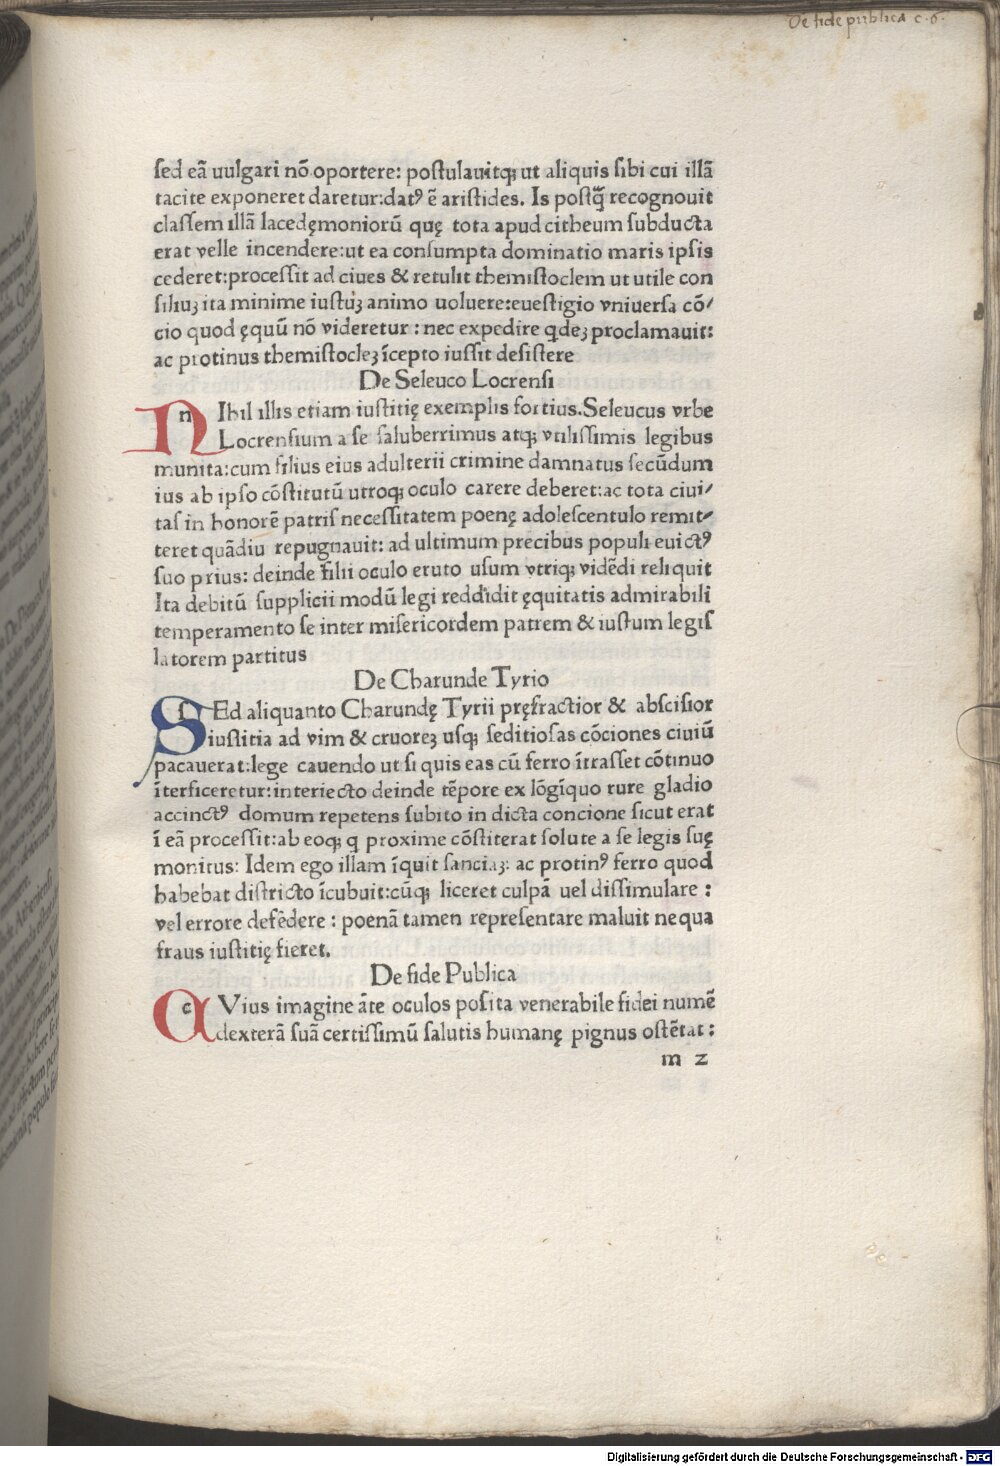 De fide publica c. 6.
sed eā uulgari nō oportere: postulauitqꝫ ut aliquis sibi cui illā
tacite exponeret daretur:datꝰ ē aristides. Is postꝙ̄ recognouit
classem illā lacedęmoniorū quę tota apud citheum subducta
erat velle incendere:ut ea consumpta dominatio maris ipsis
cederet:processit ad ciues & retulit themistoclem ut utile con
siliuꝫ ita minime iustuꝫ animo uoluere:euestigio vniuersa cō/
cio quod ęquū nō videretur : nec expedire qdeꝫ proclamauit:
ac protinus themistocleꝫ īcepto iussit desistere
De Seleuco Locrensi
nIhil illis etiam iustitię exemplis fortius.Seleucus vrbe
Locrensium a se saluberrimus atqꝫ vtilissimis legibus
munita:cum filius eius adulterii crimine damnatus secūdum
ius ab ipso cōstitutū utroqꝫ oculo carere deberet:ac tota ciui/
tas in honorē patris necessitatem poenę adolescentulo remit/
teret quādiu repugnauit: ad ultimum precibus populi euictꝰ
suo prius: deinde filii oculo eruto usum vtriqꝫ vidēdi reliquit
Ita debitū supplicii modū legi reddidit ęquitatis admirabili
temperamento se inter misericordem patrem & iustum legis
latorem partitus
De Charunde Tyrio
sEd aliquanto Charundę Tyrii pręfractior & abscisior
iustitia ad vim & cruoreꝫ usqꝫ seditiosas cōciones ciuiū
pacauerat:lege cauendo ut si quis eas cū ferro ītrasset cōtinuo
īterficeretur:interiecto deinde tēpore ex lōgīquo rure gladio
accinctꝰ domum repetens subito in dicta concione sicut erat
ī eā processit:ab eoqꝫ q proxime cōstiterat solute a se legis suę
monitus: Idem ego illam īquit sanciaꝫ: ac protinꝰ ferro quod
habebat districto īcubuit:cūqꝫ liceret culpā uel dissimulare :
vel errore defēdere : poenā tamen representare maluit ne qua
fraus iustitię fieret.
De fide Publica
cVius imagine āte oculos posita venerabile fidei numē
dexterā suā certissimū salutis humanę pignus ostētat :
m 2
Digitalisierung gefördert durch die Deutsche Forschungsgemeinschaft - DFG